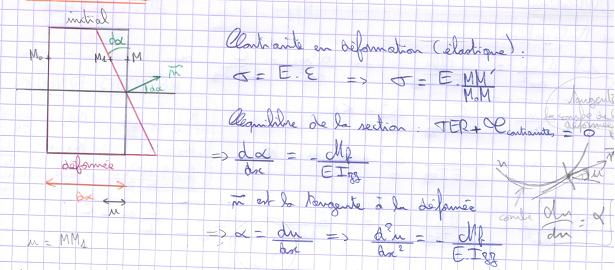 initial
dα
M₀ M₁ M
n⃗
dα
déformée
dx
u
u = MM₁
Contrainte en déformation (élastique) :
σ = E . ε => σ = E . MM' / M₀M
Aequilibre de la section : TER + contraintes = 0
=> dα / dx = - Mf / EIgz
n⃗ est la tangente à la déformée
=> α = du / dx => d²u / dx² = - Mf / EIgz
tangente
n
du
courbe
du / dn = α